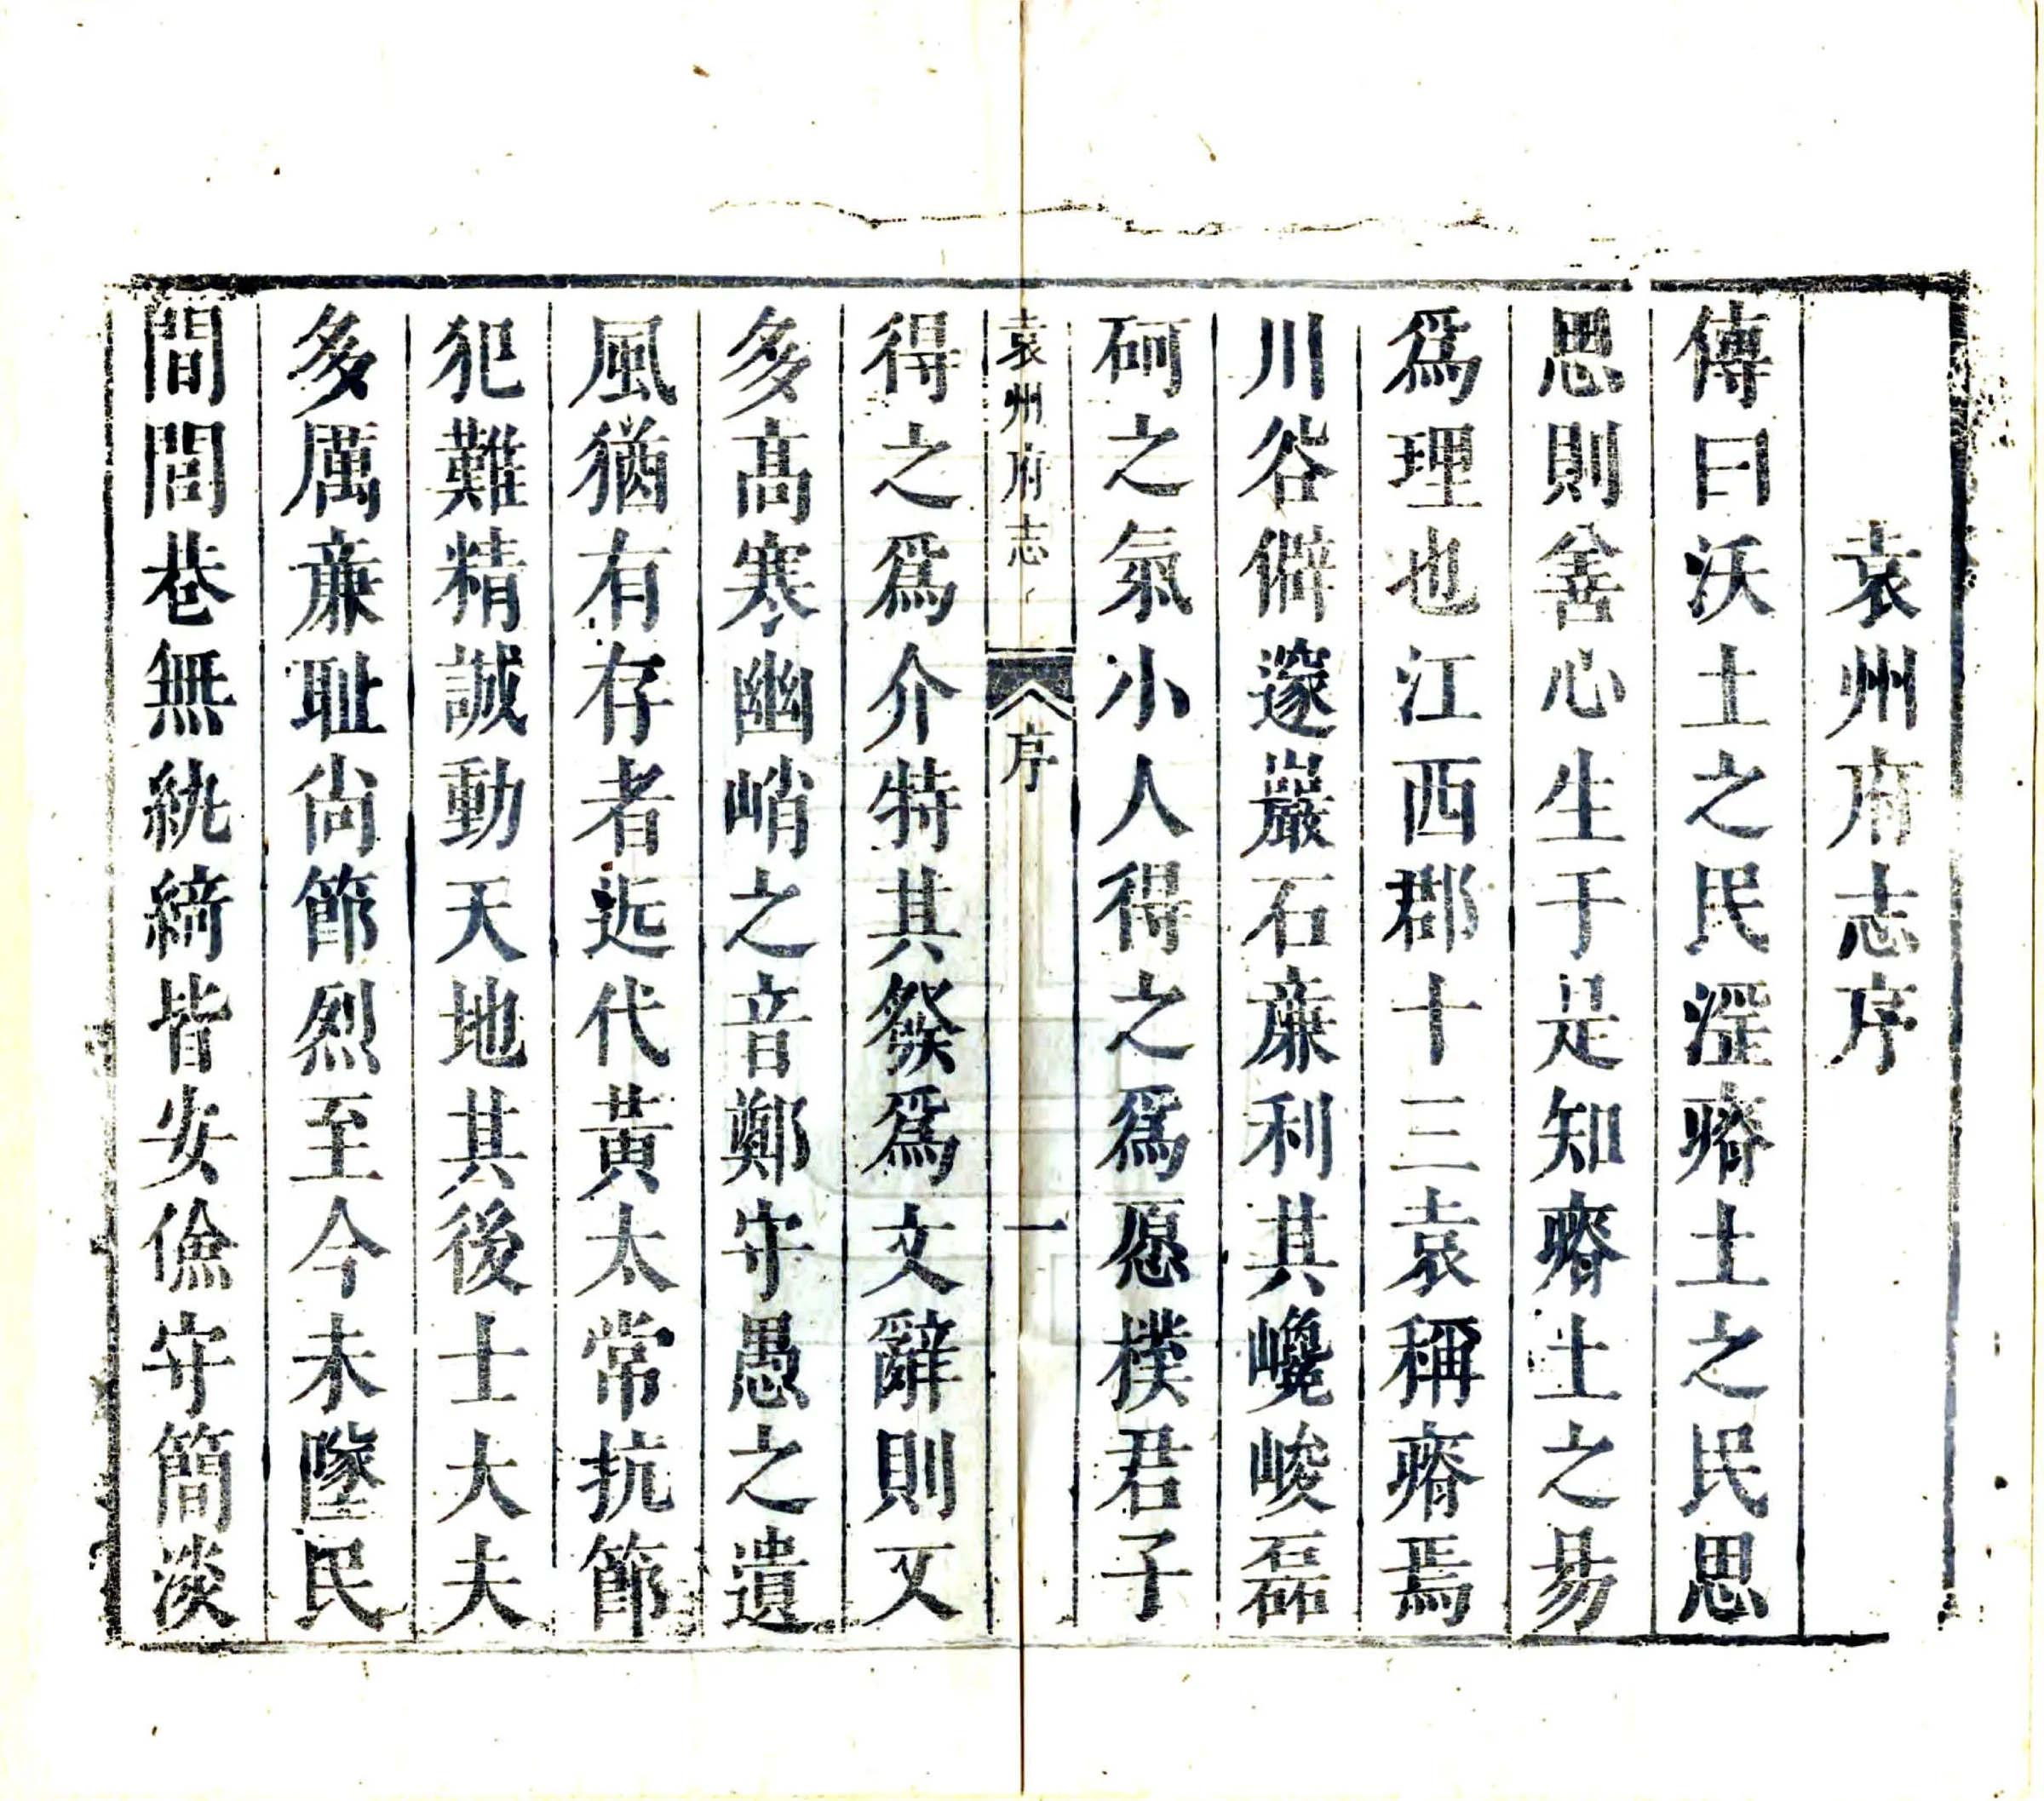 袁州府志序
傳曰沃土之民淫瘠土之民思
思則善心生于是知瘠土之易
爲理也江西郡十三袁稱瘠焉
川谷僻邃巖石亷利其巉峻磊
砢之氣小人得之爲愿樸君子
袁州府志
序
一
得之爲介特其發爲文辭則文
多高寒幽峭之音鄭守愚之遺
風猶有存者近代黃太常抗節
犯難精誠動天地其後士大夫
多厲亷耻尙節烈至今未墜民
間閭巷無紈綺皆安儉守簡淡